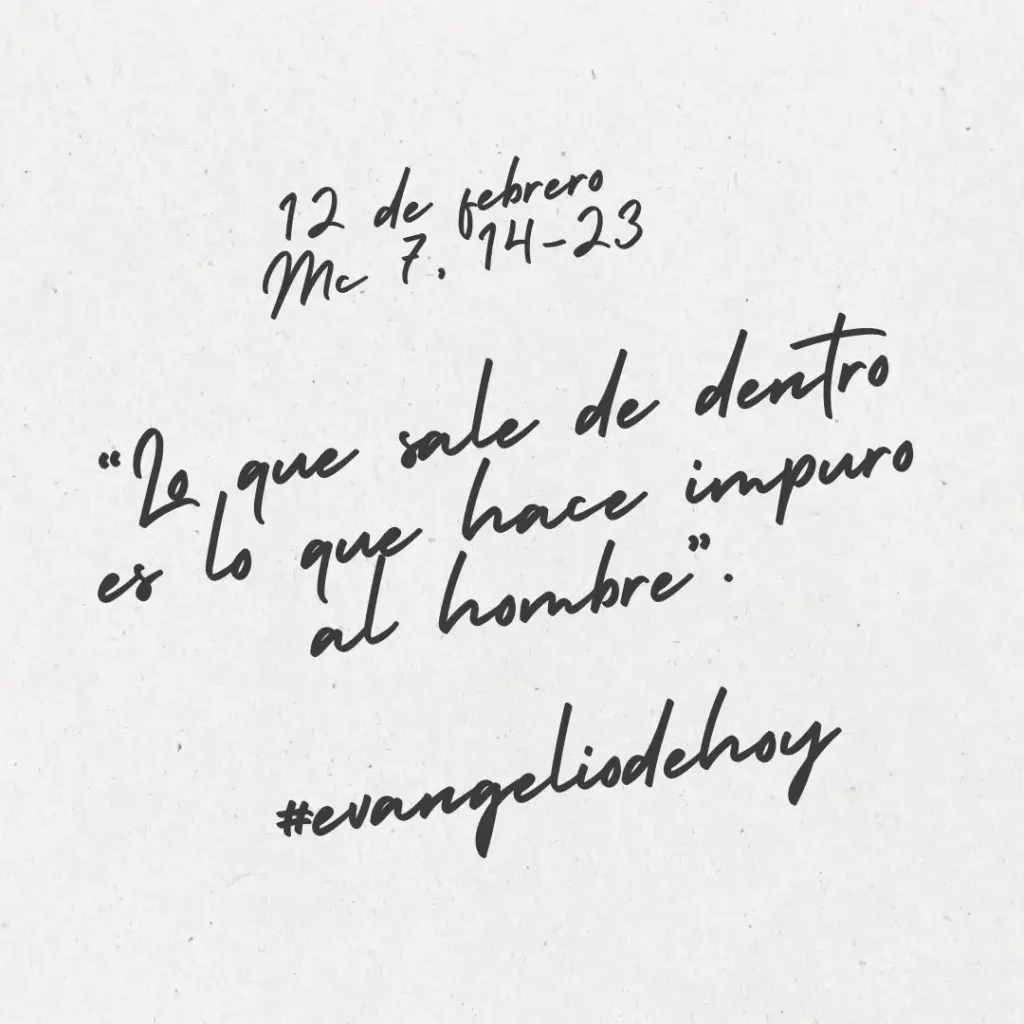 12 de febrero
Mc 7, 14-23
“Lo que sale de dentro
es lo que hace impuro
al hombre”.
#evangeliodehoy